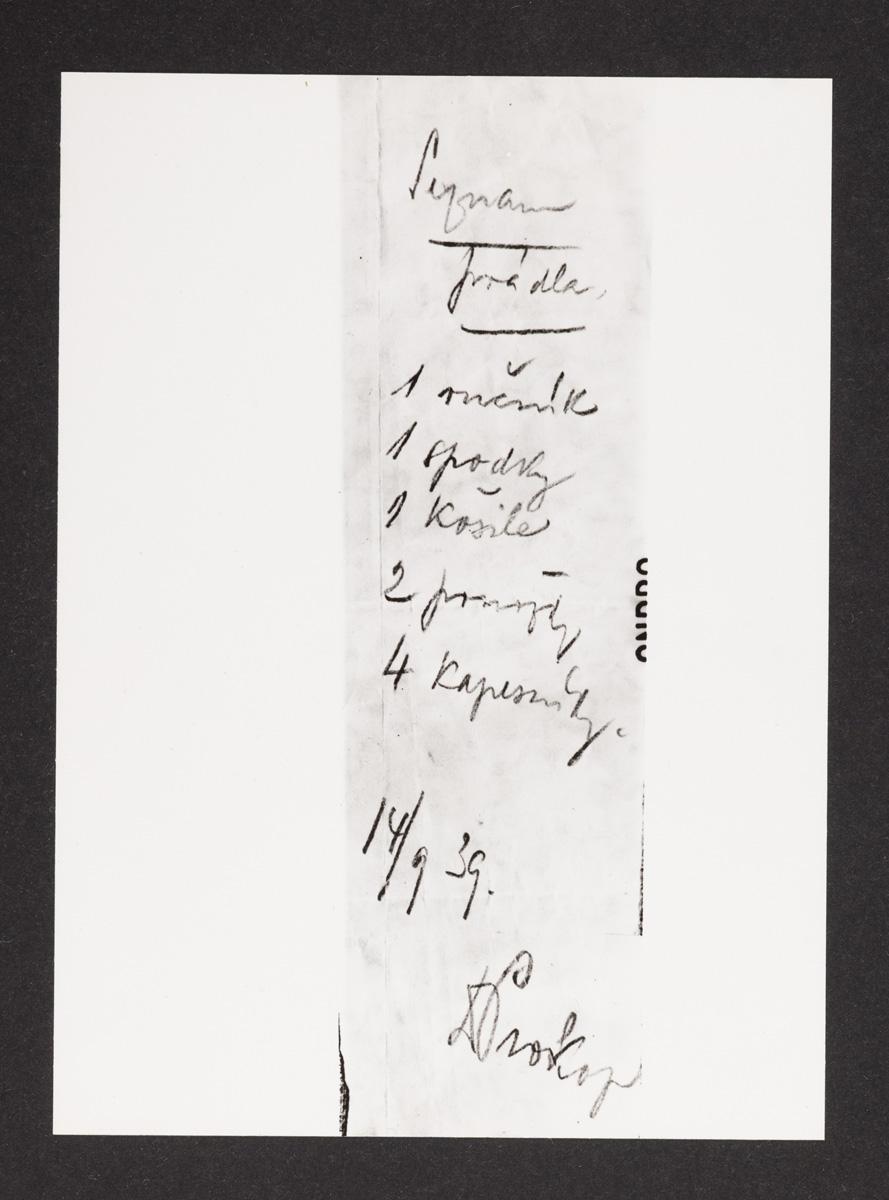 Seznam
prádla.
1 ručník
1 spodky
1 košile
2
4 kapesníky.
14/9 39.
Prokop